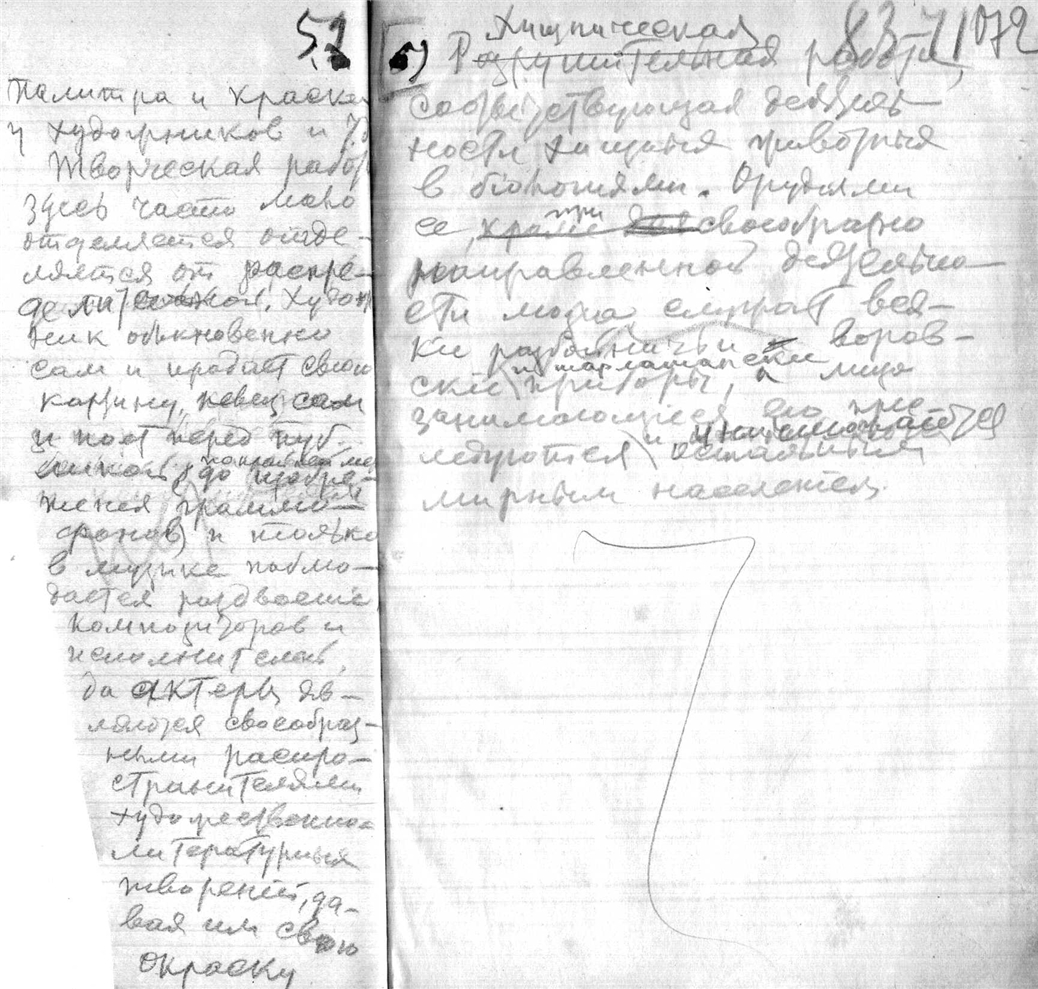 51
палитра и краски
у художников и т.д.
Творческая работа
здесь часто мало
отделяется отде-
ляется от распре-
делительной. Худож
ник обыкновенно
сам и продает свою
картину, певец сам
и поет перед пуб-
ликой (по крайней мере
до изобре-
тения граммо-
фонов) и только
в музыке наблю-
дается раздвоение
композиторов и
исполнителей,
да актеры яв-
ляются своеобраз-
ными распро-
странителями
художественно-
литературных
творений, да-
вая им свою
окраску
83-71072
хищническая
б) Разрушительная работа,
соответствующая деятель-
ности хищных животных
в биологиями. Орудиями
ее, при своеобразно
направленной деятельно
сти могла служат вся-
кие разбойничьи воров-
ские и шарлатанские
приборы, лица
занимающиеся ею пре
следуются и уничтожаются
остальным
мирным населением.